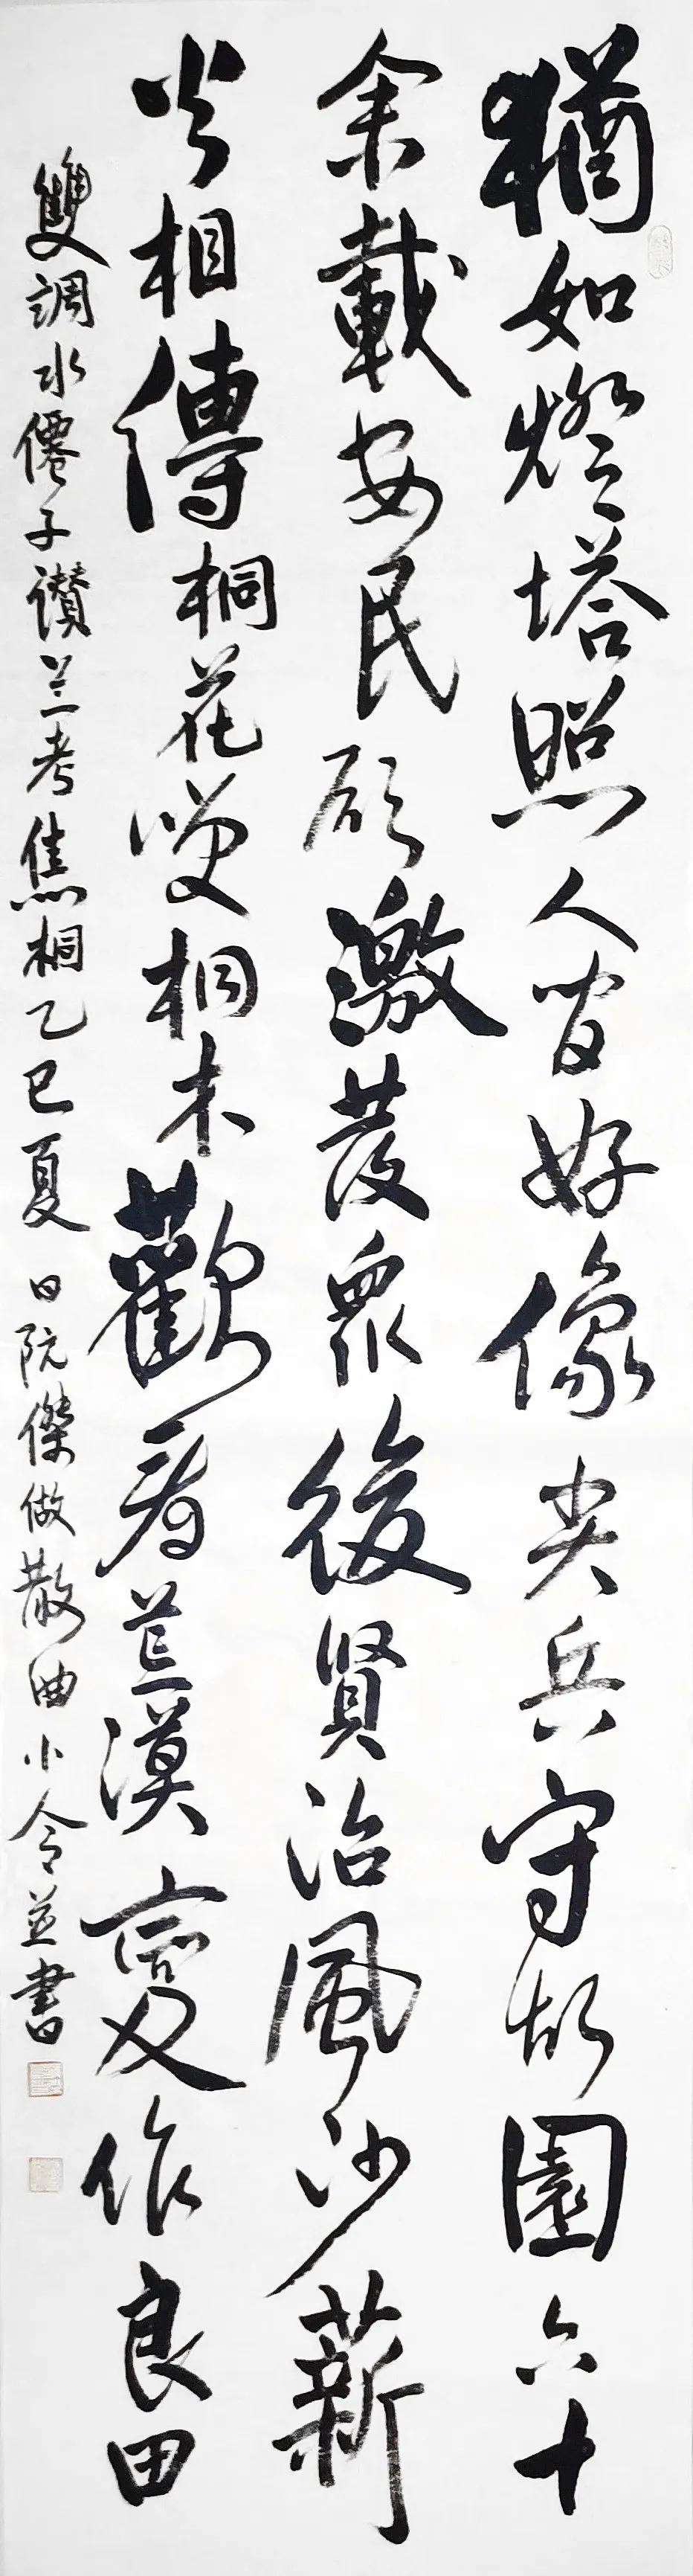 猶如燈塔照人間好像尖兵守故園六十
余載安民願激發眾後賢治風沙薪
火相傳桐花笑桐木歡看荒漠變作良田
雙調水僊子讃兰考焦桐乙巳夏日阮傑做散曲小令並書